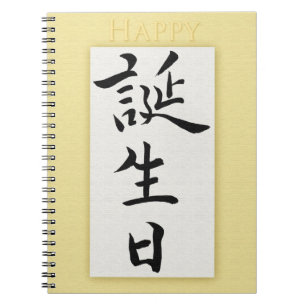 HAPPY
誕
生
日